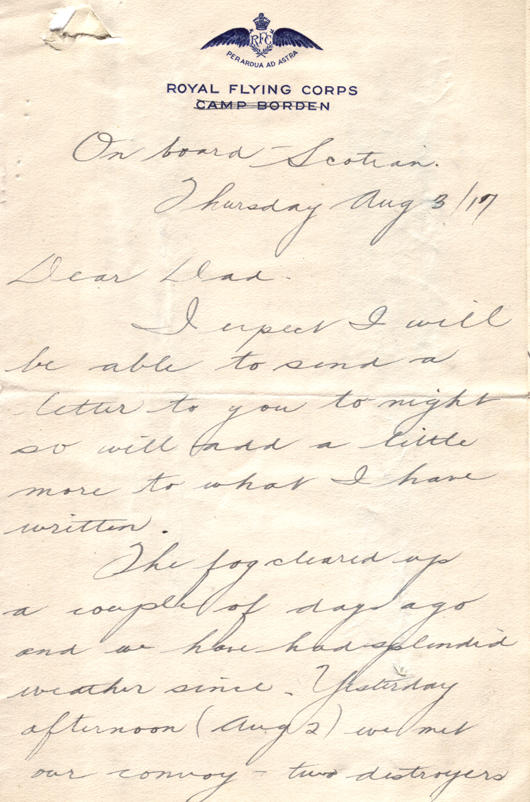 RFC
PER ARDUA AD ASTRA
ROYAL FLYING CORPS
CAMP BORDEN
On board - Scotian.
Thursday Aug 3/17
Dear Dad.
I expect I will
be able to send a
letter to you to night
so will add a little
more to what I have
written.
The fog cleared up
a couple of days ago
and we have had splendid
weather since. Yesterday
afternoon (Aug 2) we met
our convoy - two destroyers